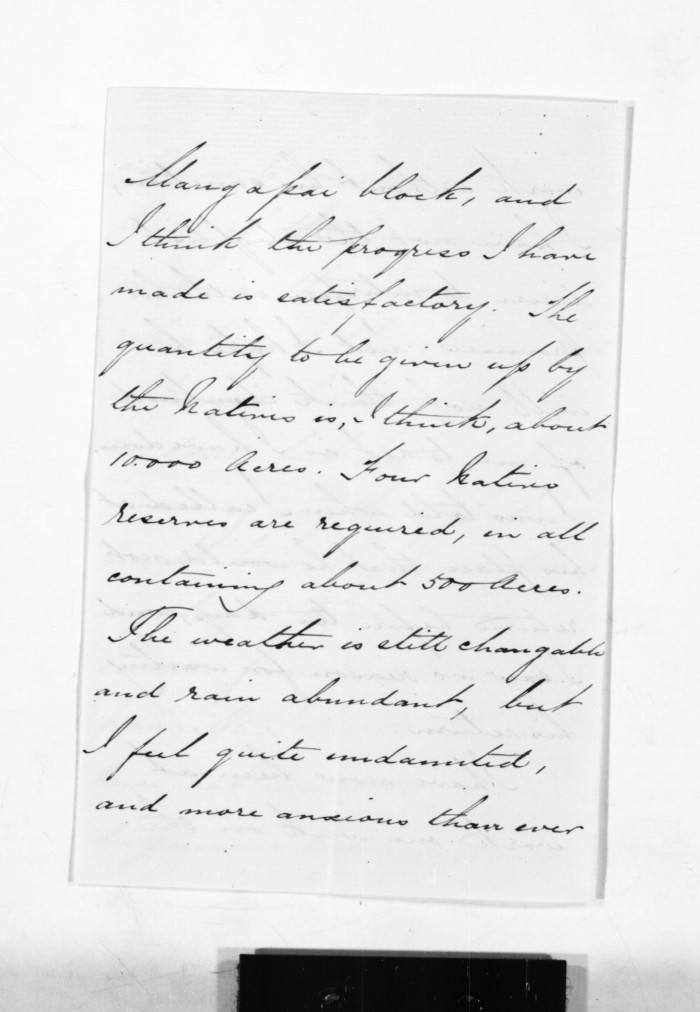 Mangapai block, and
I think the progress I have
made is satisfactory. The
quantity to be given up by
the Natives is, I think, about
10.000 Acres. Four Native
reserves are required, in all
containing about 500 Acres.
The weather is still changable
and rain abundant, but
I feel quite undaunted,
and more anxious than ever